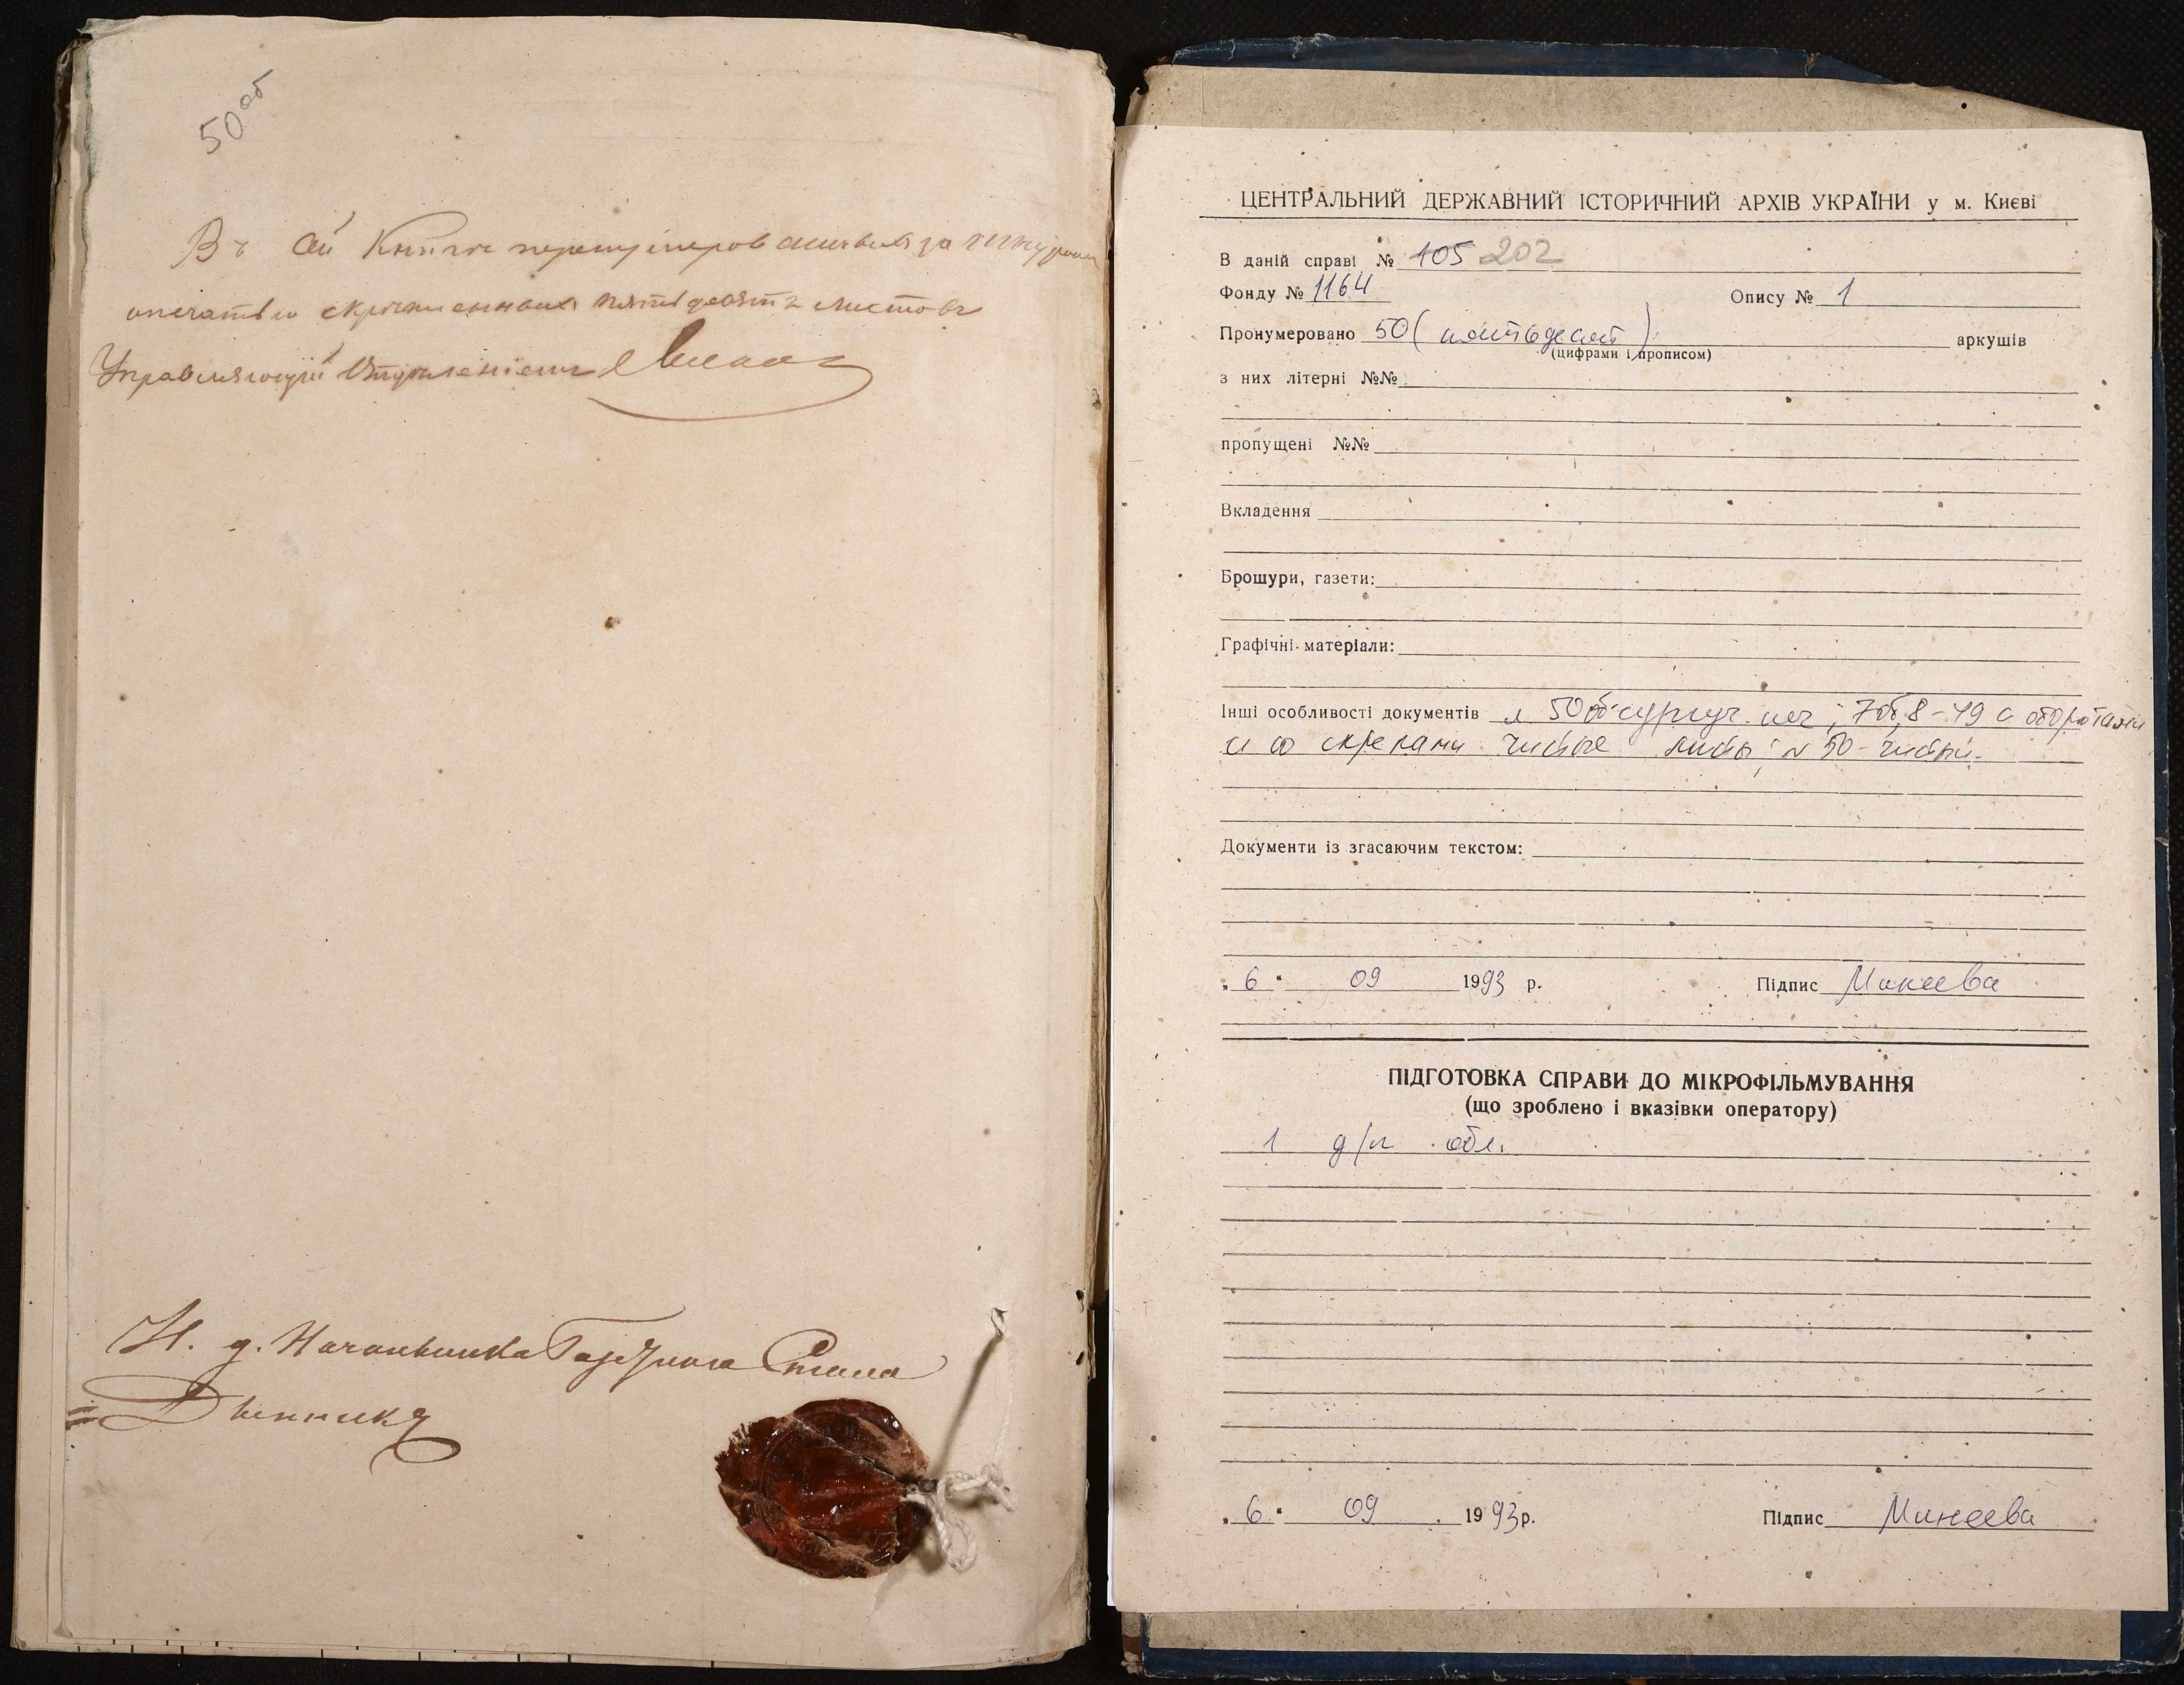 50об
Въ сей Книгѣ перенумерованныхъ за шнуромъ
печатью скрепленныхъ пятьдесятъ листовъ
Управляющій Отделеніемъ
И. д. Начальника Газетнаго Стола
ЦЕНТРАЛЬНИЙ ДЕРЖАВНИЙ ІСТОРИЧНИЙ АРХІВ УКРАЇНИ у м. Києві
В даній справі № 105 202
Фонду № 1164 Опису № 1
Пронумеровано 50 (пятьдесят) аркушів
(цифрами і прописом)
з них літерні №№
пропущені №№
Вкладення
Брошури, газети:
Графічні матеріали:
Інші особливості документів л 50об-сургуч. печ; 7об, 8-49 с оборотами
и со скрепами чистые листы; л 50-чистый.
Документи із згасаючим текстом:
„ 6 “ 09 1993 р. Підпис Минеева
ПІДГОТОВКА СПРАВИ ДО МІКРОФІЛЬМУВАННЯ
(що зроблено і вказівки оператору)
1 д/п обл.
„ 6 “ 09 1993р. Підпис Минеева